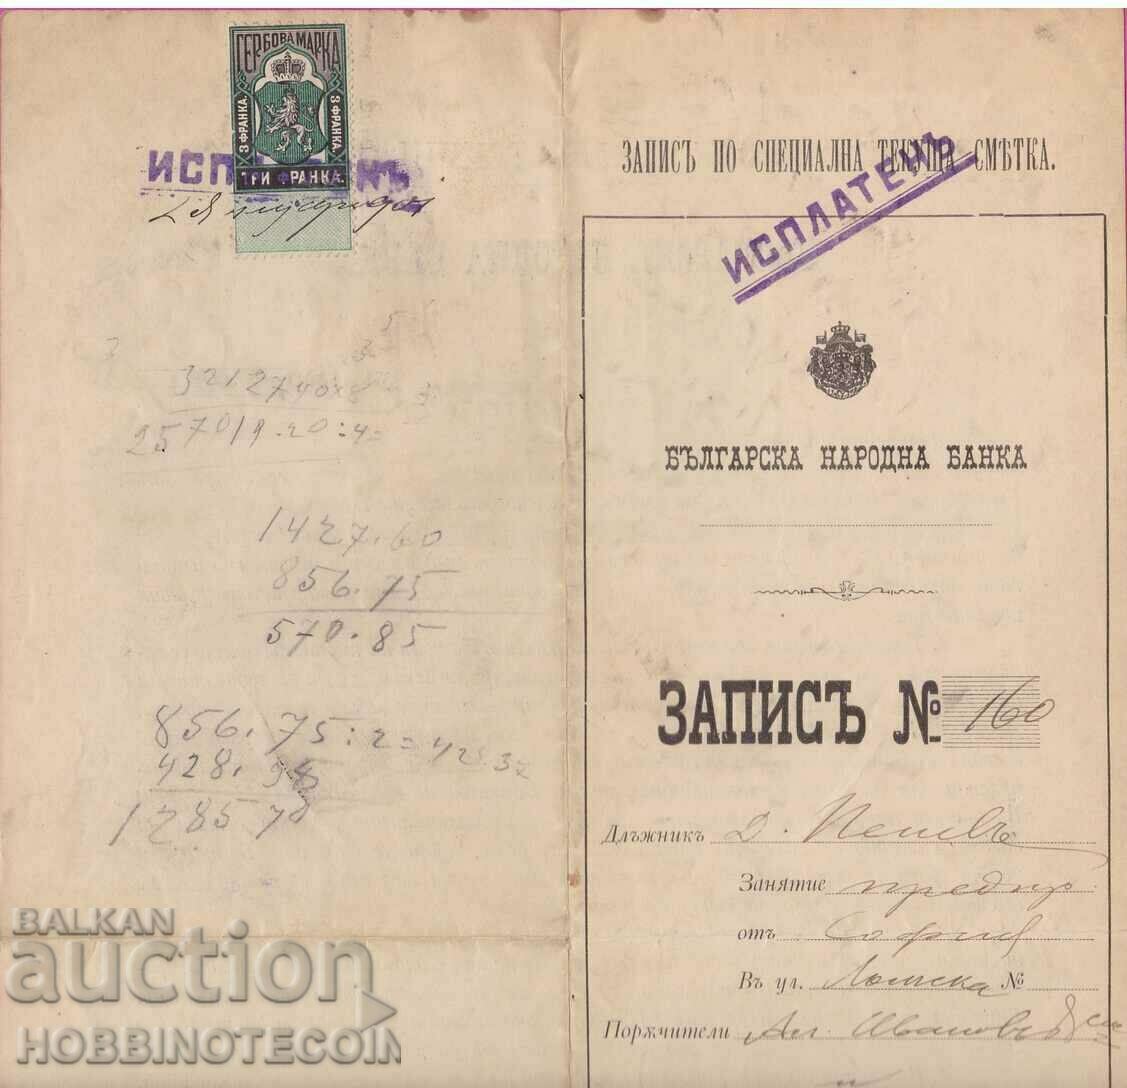 ГЕРБОВА МАРКА
3 ФРАНКА.
3 ФРАНКА.
ТРИ ФРАНКА.
321274088
257019.20:4=
1427.60
856.75
570.85
856.75:2=428.37
428.
128570
ЗАПИСЪ ПО СПЕЦИАЛНА ТЕКУЩА СМѢТКА.
ИСПЛАТЕНЪ
БЪЛГАРСКА НАРОДНА БАНКА
ЗАПИСЪ № 160
Длъжникъ Д. Пешевъ
Занятие предпр.
отъ София
Въ ул. Ломска №
Порѫчители Ал. Ивановъ
BALKAN
auction
HOBBINOTECOIN